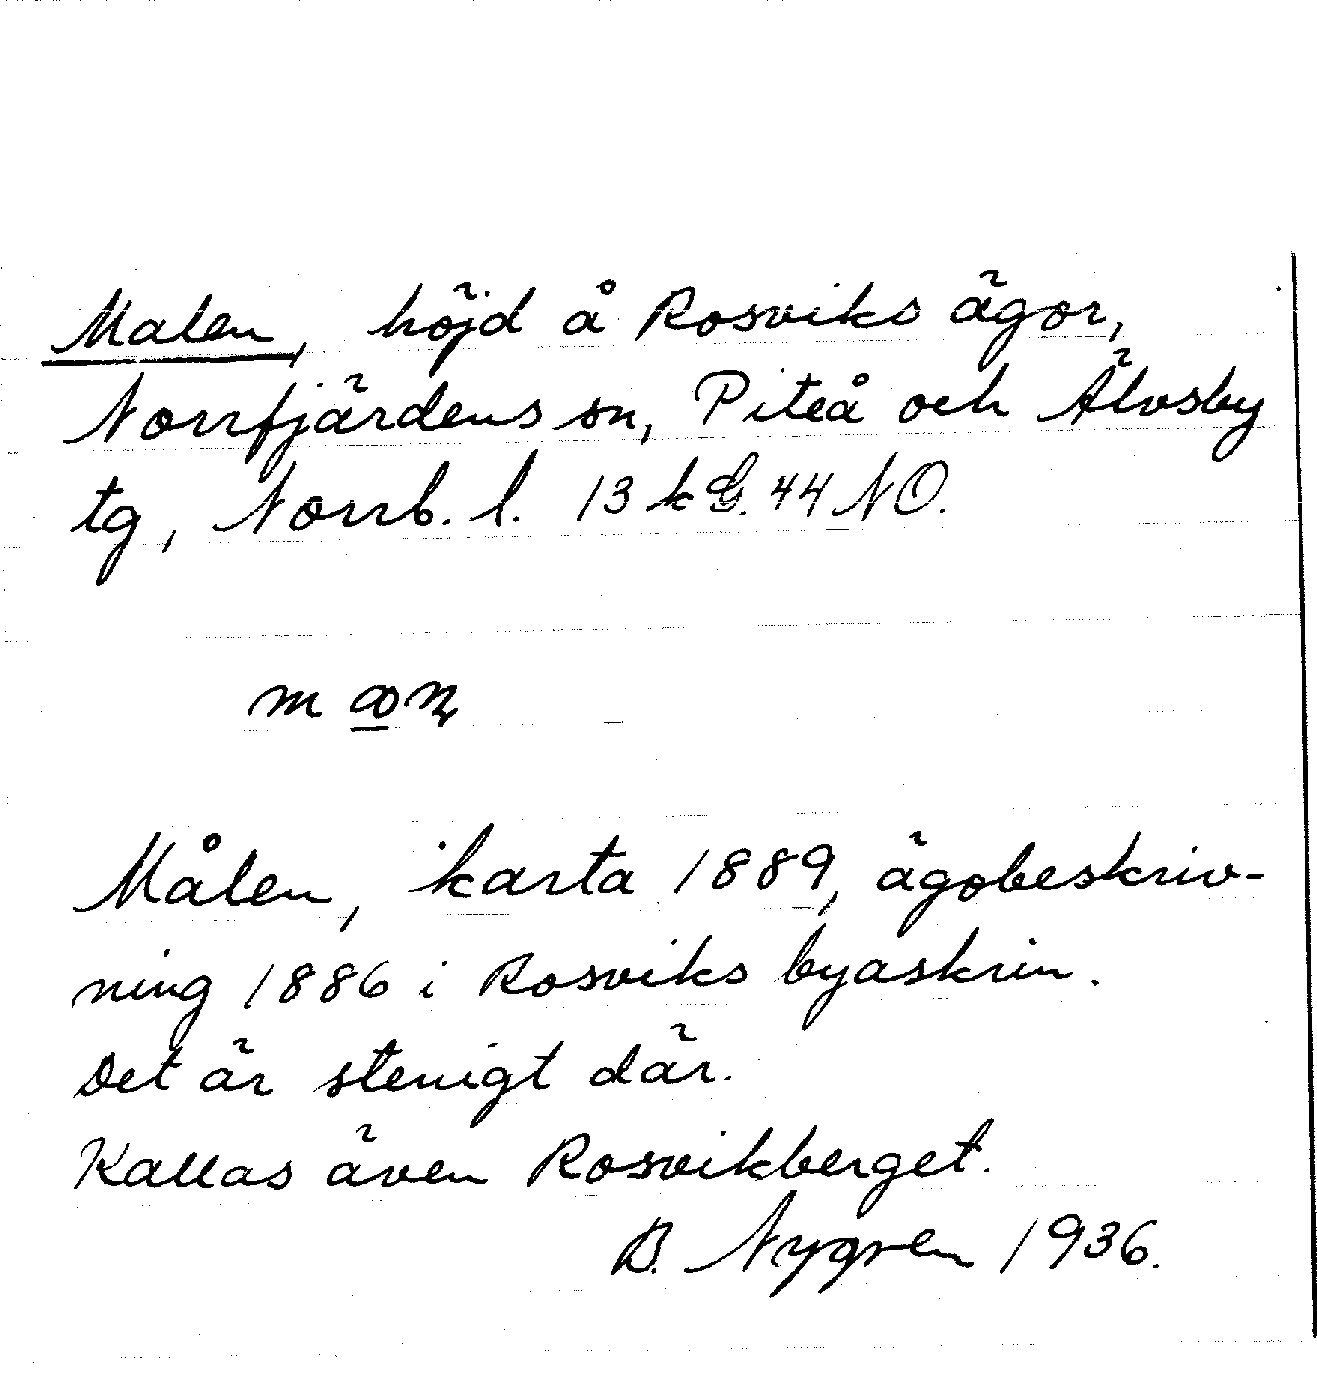 Malen, höjd å Rosviks ägor,
Norrfjärdens sn, Piteå och Älvsby
tg, Norrb. l. 13 k G. 44 NO.
Målen, karta 1889, ägobeskriv-
ning 1886 i Rosviks byaskrin.
Det är stenigt där.
Kallas även Rosvikberget.
B. Nygren 1936.